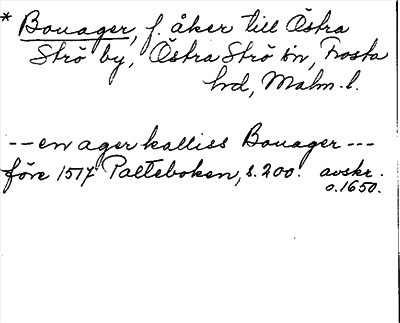 * Bouager, f. åker till Östra
Strö by, Östra Strö sn, Frosta
hd, Malm. l.
-- en ager kalliss Bouager ---
före 1517 Palteboken, s. 200. avskr.
o. 1650.